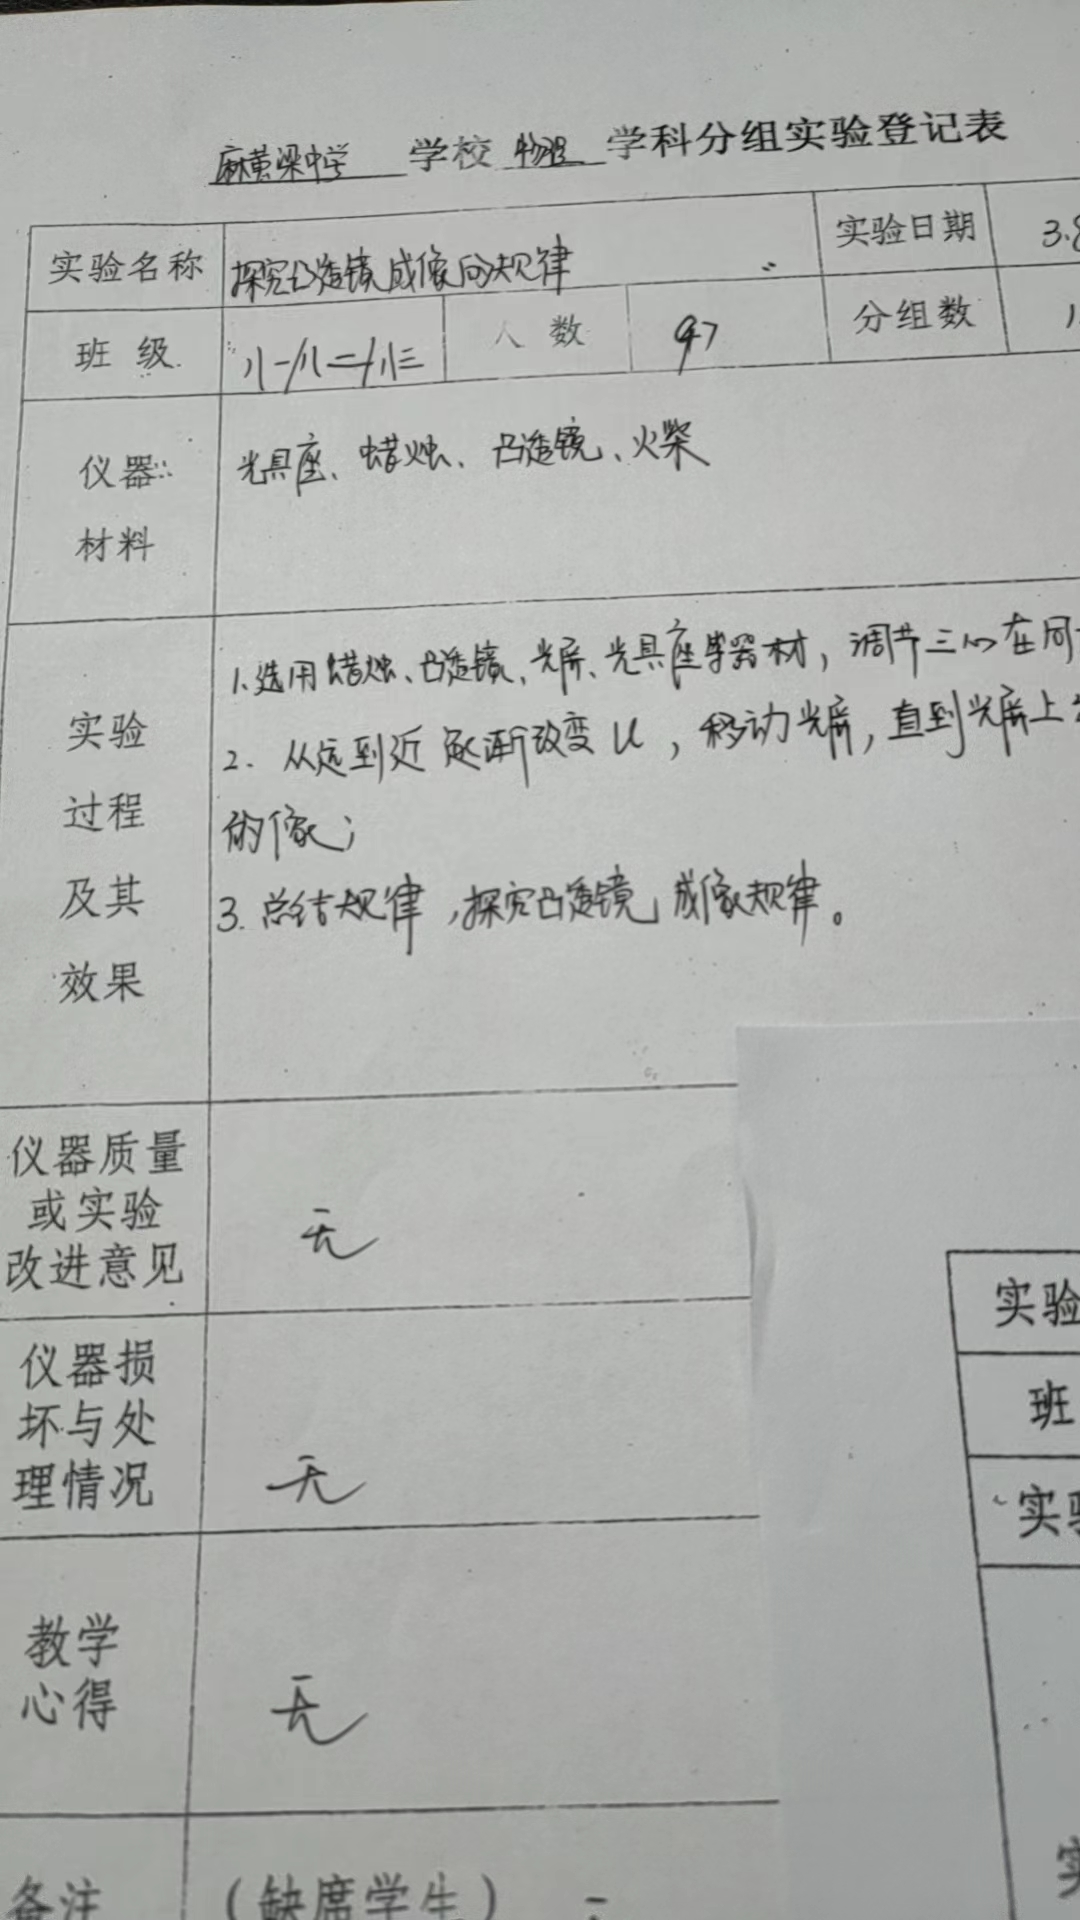 麻黄梁中学 学校 物理 学科分组实验登记表
实验名称 探究凸透镜成像的规律 实验日期 3.8
班 级 人 数 97 分组数
仪器 材料 光具座、蜡烛、凸透镜、火柴
实验 过程 及其 效果
1.选用蜡烛、凸透镜、光屏、光具座等器材，调节三心在同
2. 从远到近逐渐改变u，移动光屏，直到光屏上
的像；
3. 总结规律，探究凸透镜成像规律。
仪器质量
或实验
改进意见 无
仪器损
坏与处
理情况 无
教学
心得 无
备注 （缺席学生）
实验
班
实验
实